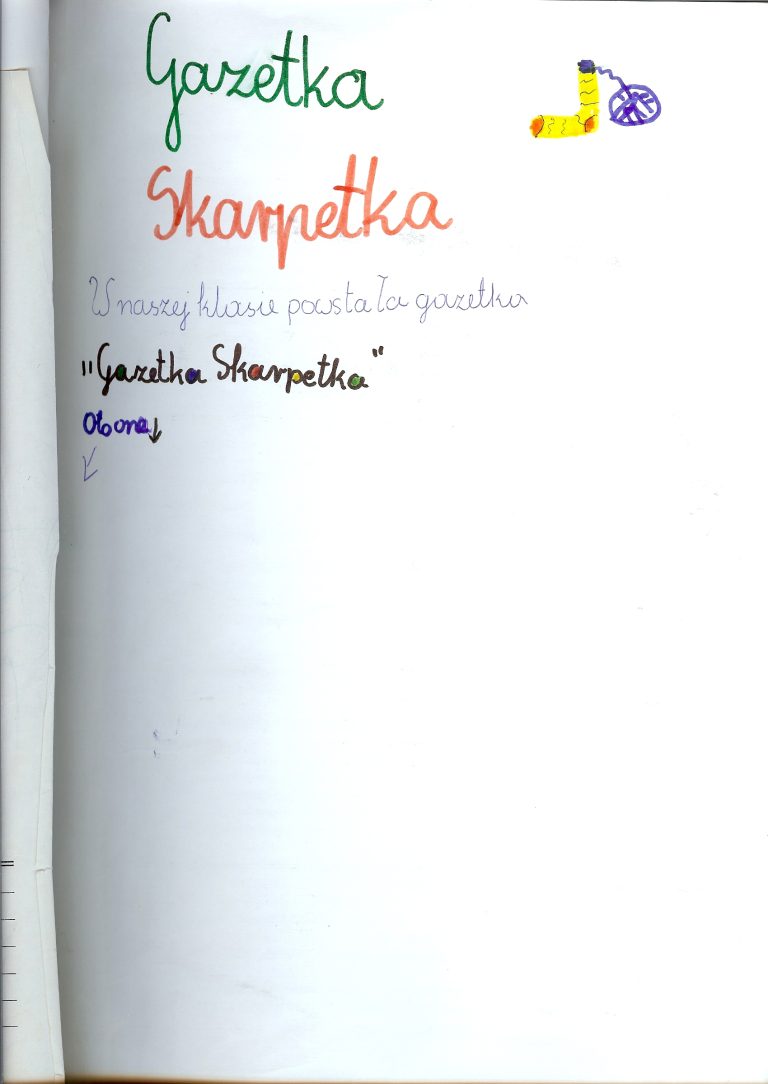 Gazetka
Skarpetka
W naszej klasie powstała gazetka
"Gazetka Skarpetka"
Obone